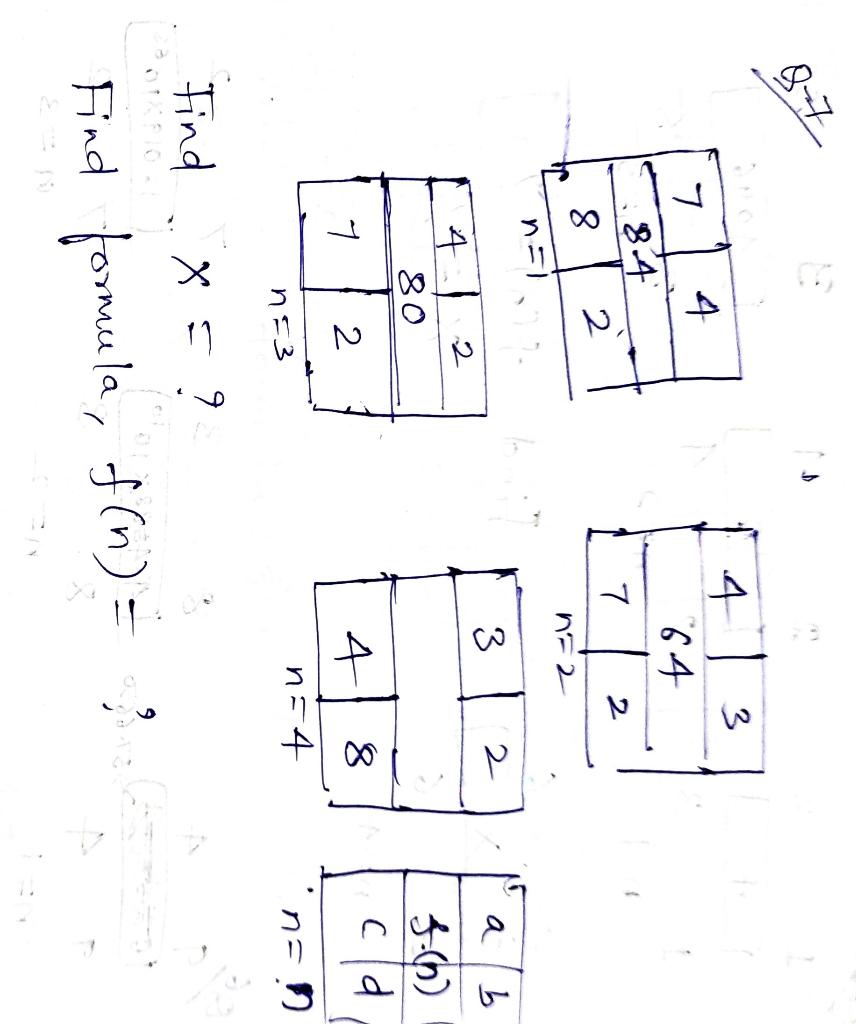 Q-7
7 4
84
8 2
n=1
4 3
64
7 2
n=2
4 2
80
7 2
n=3
3 2
4 8
n=4
a b
f(n)
c d
n=n
Find x = ?
Find formula, f(n) = ?